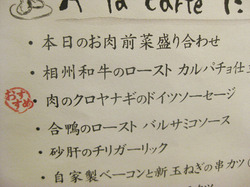 A la carte
・本日のお肉前菜盛り合わせ
・相州和牛のロースト カルパチョ仕
おすすめ
・肉のクロヤナギのドイツソーセージ
・合鴨のロースト バルサミコソース
・砂肝のチリガーリック
自家製ベーコンと新玉ねぎの串カツ